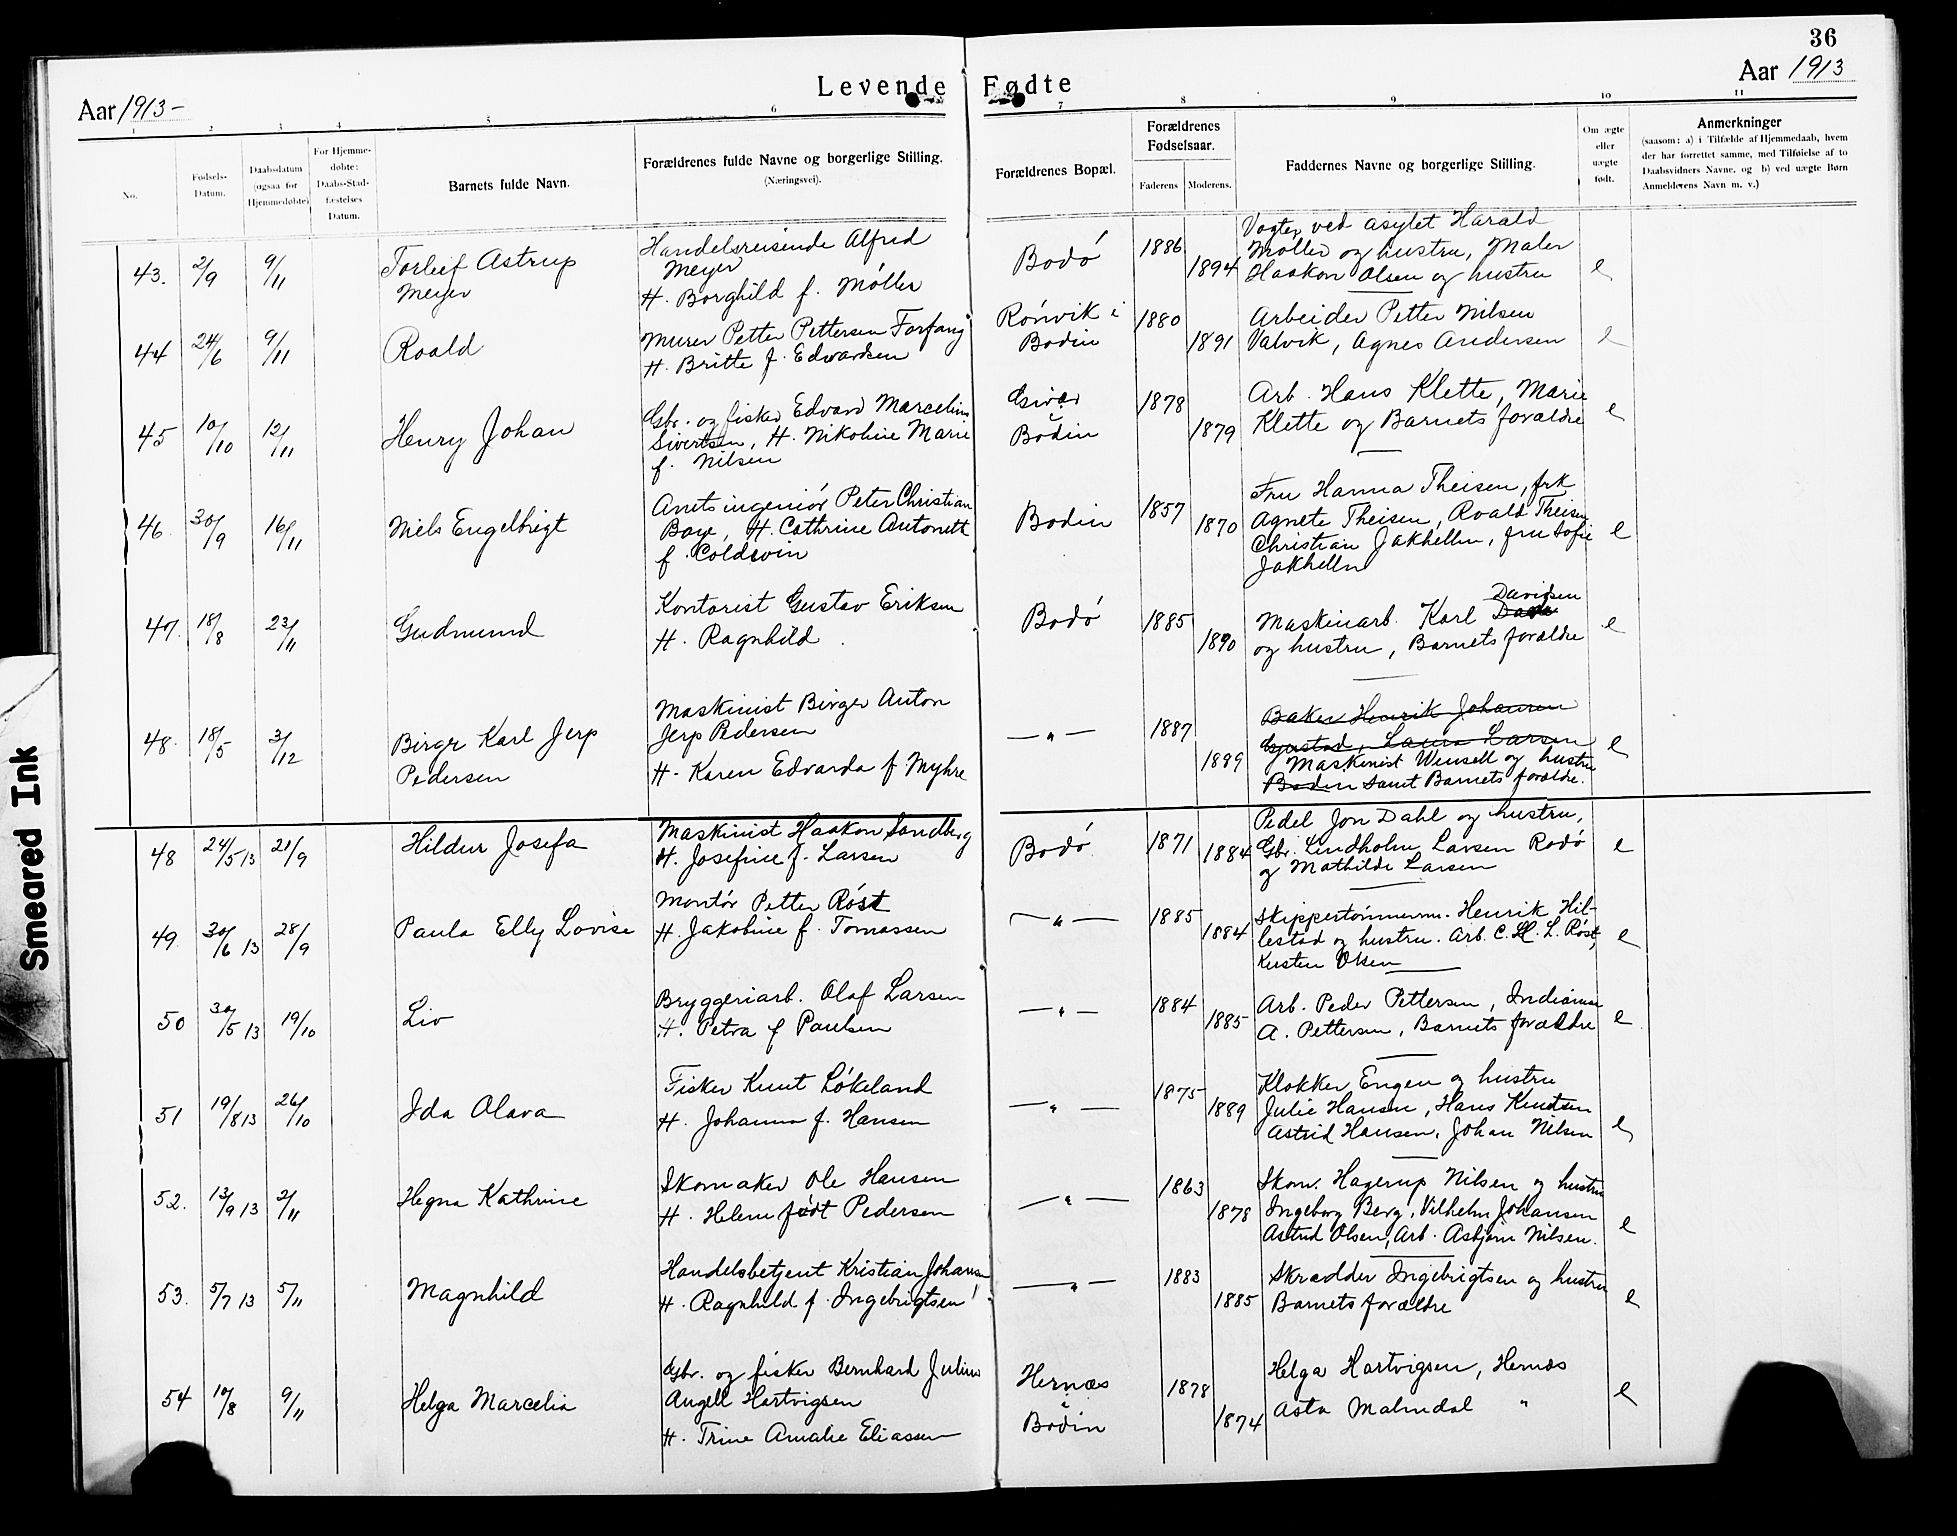 36
Levende Fødte
Aar 1913-
Aar 1913
1 2 3 4 5 6 7 8 9 10 11
No.
Fødsels-
Datum.
Daabsdatum
(ogsaa for
Hjemmedøbte)
For Hjemme-
døbte:
Daabs-Stad-
fæstelses
Datum.
Barnets fulde Navn.
Forældrenes fulde Navne og borgerlige Stilling.
(Næringsvei).
Forældrenes Bopæl.
Forældrenes
Fødselsaar.
Faderens Moderens.
Faddernes Navne og borgerlige Stilling.
Om ægte
eller
uægte
født.
Anmerkninger
(saasom: a) i Tilfælde af Hjemmedaab, hvem
der har forrettet samme, med Tilføielse af to
Daabsvidners Navne. og b) ved uægte Børn
Anmelderens Navn m. v.)
43. 2/9 9/11
Torleif Astrup
Meyer
Handelsreisende Alfred
Meyer
H. Borghild f. Møller
Bodó
1886
1894
Vogter ved asylet Harald
Møller og hustru, Maler
Haakon Olsen og hustru
e
44 24/6 9/11
Roald
Murer Petter Pettersen Forfang
H. Britte f. Edvardsen
Rónvik i
Bodin
1880
1891
Arbeider Petter Nilsen
Valvik, Agnes Andersen
e
45 10/10 12/11
Henry Johan
Gbr. og fisker Edvard Marcelius
Sivertsen, H. Nikoline Marie
f. Nilsen
Givær
i
Bodin
1878
1879
Arb. Hans Klette, Marie
Klette og Barnets forældre
e
46. 30/9 16/11
Niels Engelbrigt
Amtsingeniór Peter Christian
Boye, H. Cathrine Antonette
f. Coldevin
Bodin
1857
1870
Fru Hanna Theisen, frk
Agnete Theisen, Roald Theisen
Christian Jakhelln, fru Sofie
Jakhelln
e
47. 18/8 23/11
Gudmund
Kontorist Gustav Eriksen
H. Ragnhild
Bodó
1885
1890
Davidsen
Maskinarb. Karl
og hustru, Barnets forældre
e
48. 18/5 3/12
Birger Karl Jerp
Pedersen
Maskinist Birger Anton
Jerp Pedersen
H. Karen Edvarda f Myhre
— " —
1887
1889
Baker Henrik Johansen
Gjerstad, Laura Larsen
Maskinist Wensell og hustru
Bodin samt Barnets forældre.
e
48 24/5 13 21/9
Hildur Josefa
Maskinist Haakon Sandberg
H. Josefine f. Larsen
Bodó
1871
1884
Pedel Jon Dahl og hustru,
Gbr. Lindholm Larsen Rodó
og Mathilde Larsen
e
49. 30/6 13 28/9
Paula Elly Lovise
Montór Petter Róst
H. Jakobine f. Tomassen
— " —
1885
1884
Skippertómmerm. Henrik Hil-
lestad og hustru. Arb. C. H. L. Róst,
Kirsten Olsen
e
50 30/5 13 19/10
Liv
Bryggeriarb. Olaf Larsen
H. Petra f Paulsen
— " —
1884
1885
Arb. Peder Pettersen, Indianna
A. Pettersen, Barnets forældre
e
51 19/8 13 26/10
Ida Olava
Fisker Knut Lókeland
H. Johanna f. Hansen
— " —
1875
1889
Klokker Engen og hustru
Julie Hansen, Hans Knutsen
Astrid Hansen, Johan Nilsen
e
52. 13/9 13 2/11
Hegna Kathrine
Skomaker Ole Hansen
H. Helene født Pedersen
— " —
1863
1878
Skom. Hagerup Nilsen og hustru
Ingeborg Berg, Vilhelm Johansen
Astrid Olsen, Arb. Asbjørn Nilsen.
e
53. 5/7 13 5/11
Magnhild
Handelsbetjent Kristian Johansen
H. Ragnhild f. Ingebrigtsen
— " —
1883
1885
Skrædder Ingebrigtsen og hustru
Barnets forældre
e
54 10/8 9/11
Helga Marcelia
Gbr. og fisker Bernhard Julius
Angell Hartvigsen
H. Trine Amalie Eliassen
Hernæs
i
Bodin
1878
1874
Helga Hartvigsen, Hernæs
Asta Malmdal "
e
Smeared Ink